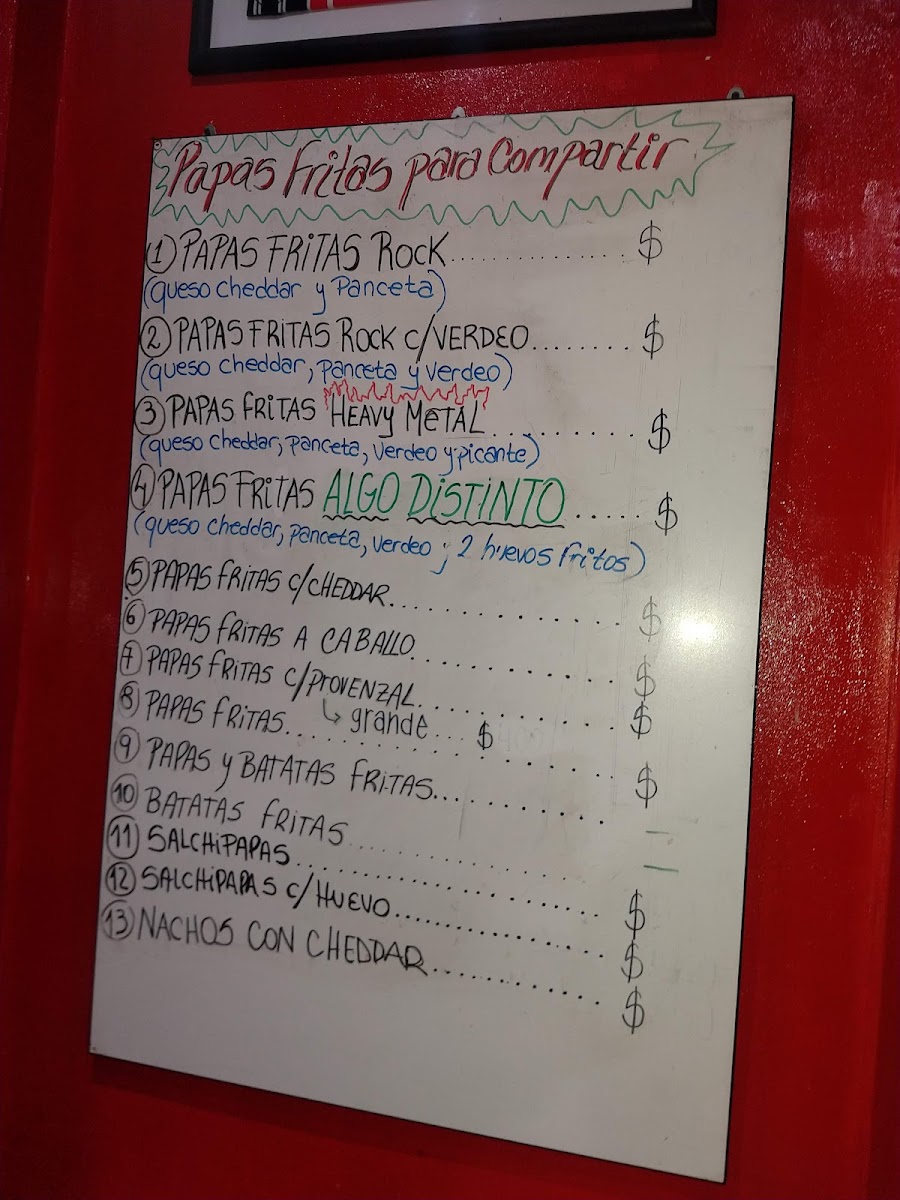 Papas Fritas para Compartir
1 PAPAS FRITAS ROCK.................... $
(queso cheddar y Panceta)
2 PAPAS FRITAS ROCK C/VERDEO........ $
(queso cheddar, panceta y verdeo)
3 PAPAS FRITAS HEAVY METAL............ $
(queso cheddar, panceta, verdeo y picante)
4 PAPAS FRITAS ALGO DISTINTO...... $
(queso cheddar, panceta, verdeo y 2 huevos fritos)
5 PAPAS FRITAS C/CHEDDAR............. $
6 PAPAS FRITAS A CABALLO............. $
7 PAPAS FRITAS C/PROVENZAL........... $
↳ grande.... $
8 PAPAS FRITAS..................... $
9 PAPAS Y BATATAS FRITAS...........
10 BATATAS FRITAS ................
11 SALCHIPAPAS..................... $
12 SALCHIPAPAS C/HUEVO.............. $
13 NACHOS CON CHEDDAR............. $